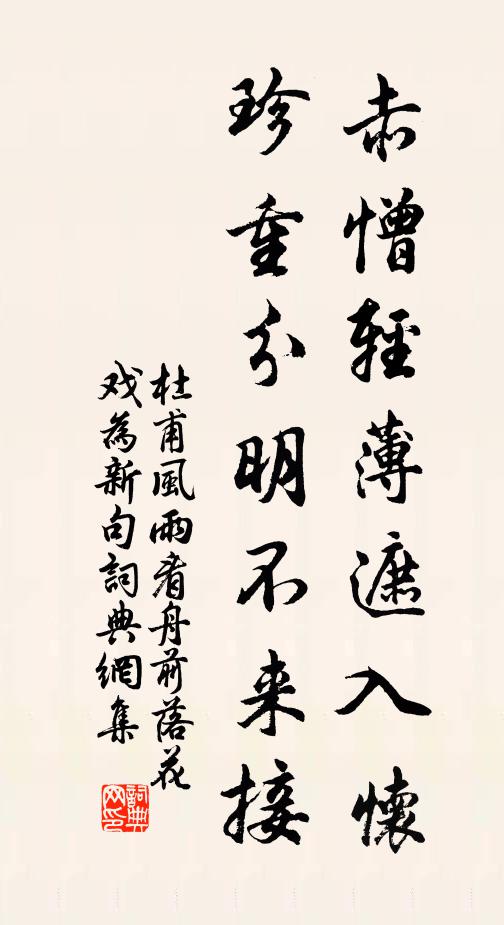 赤憎輕薄遮入懷
珍重分明不来接
杜甫風雨看舟前落花
戏為新句詞典網集
詞典网印